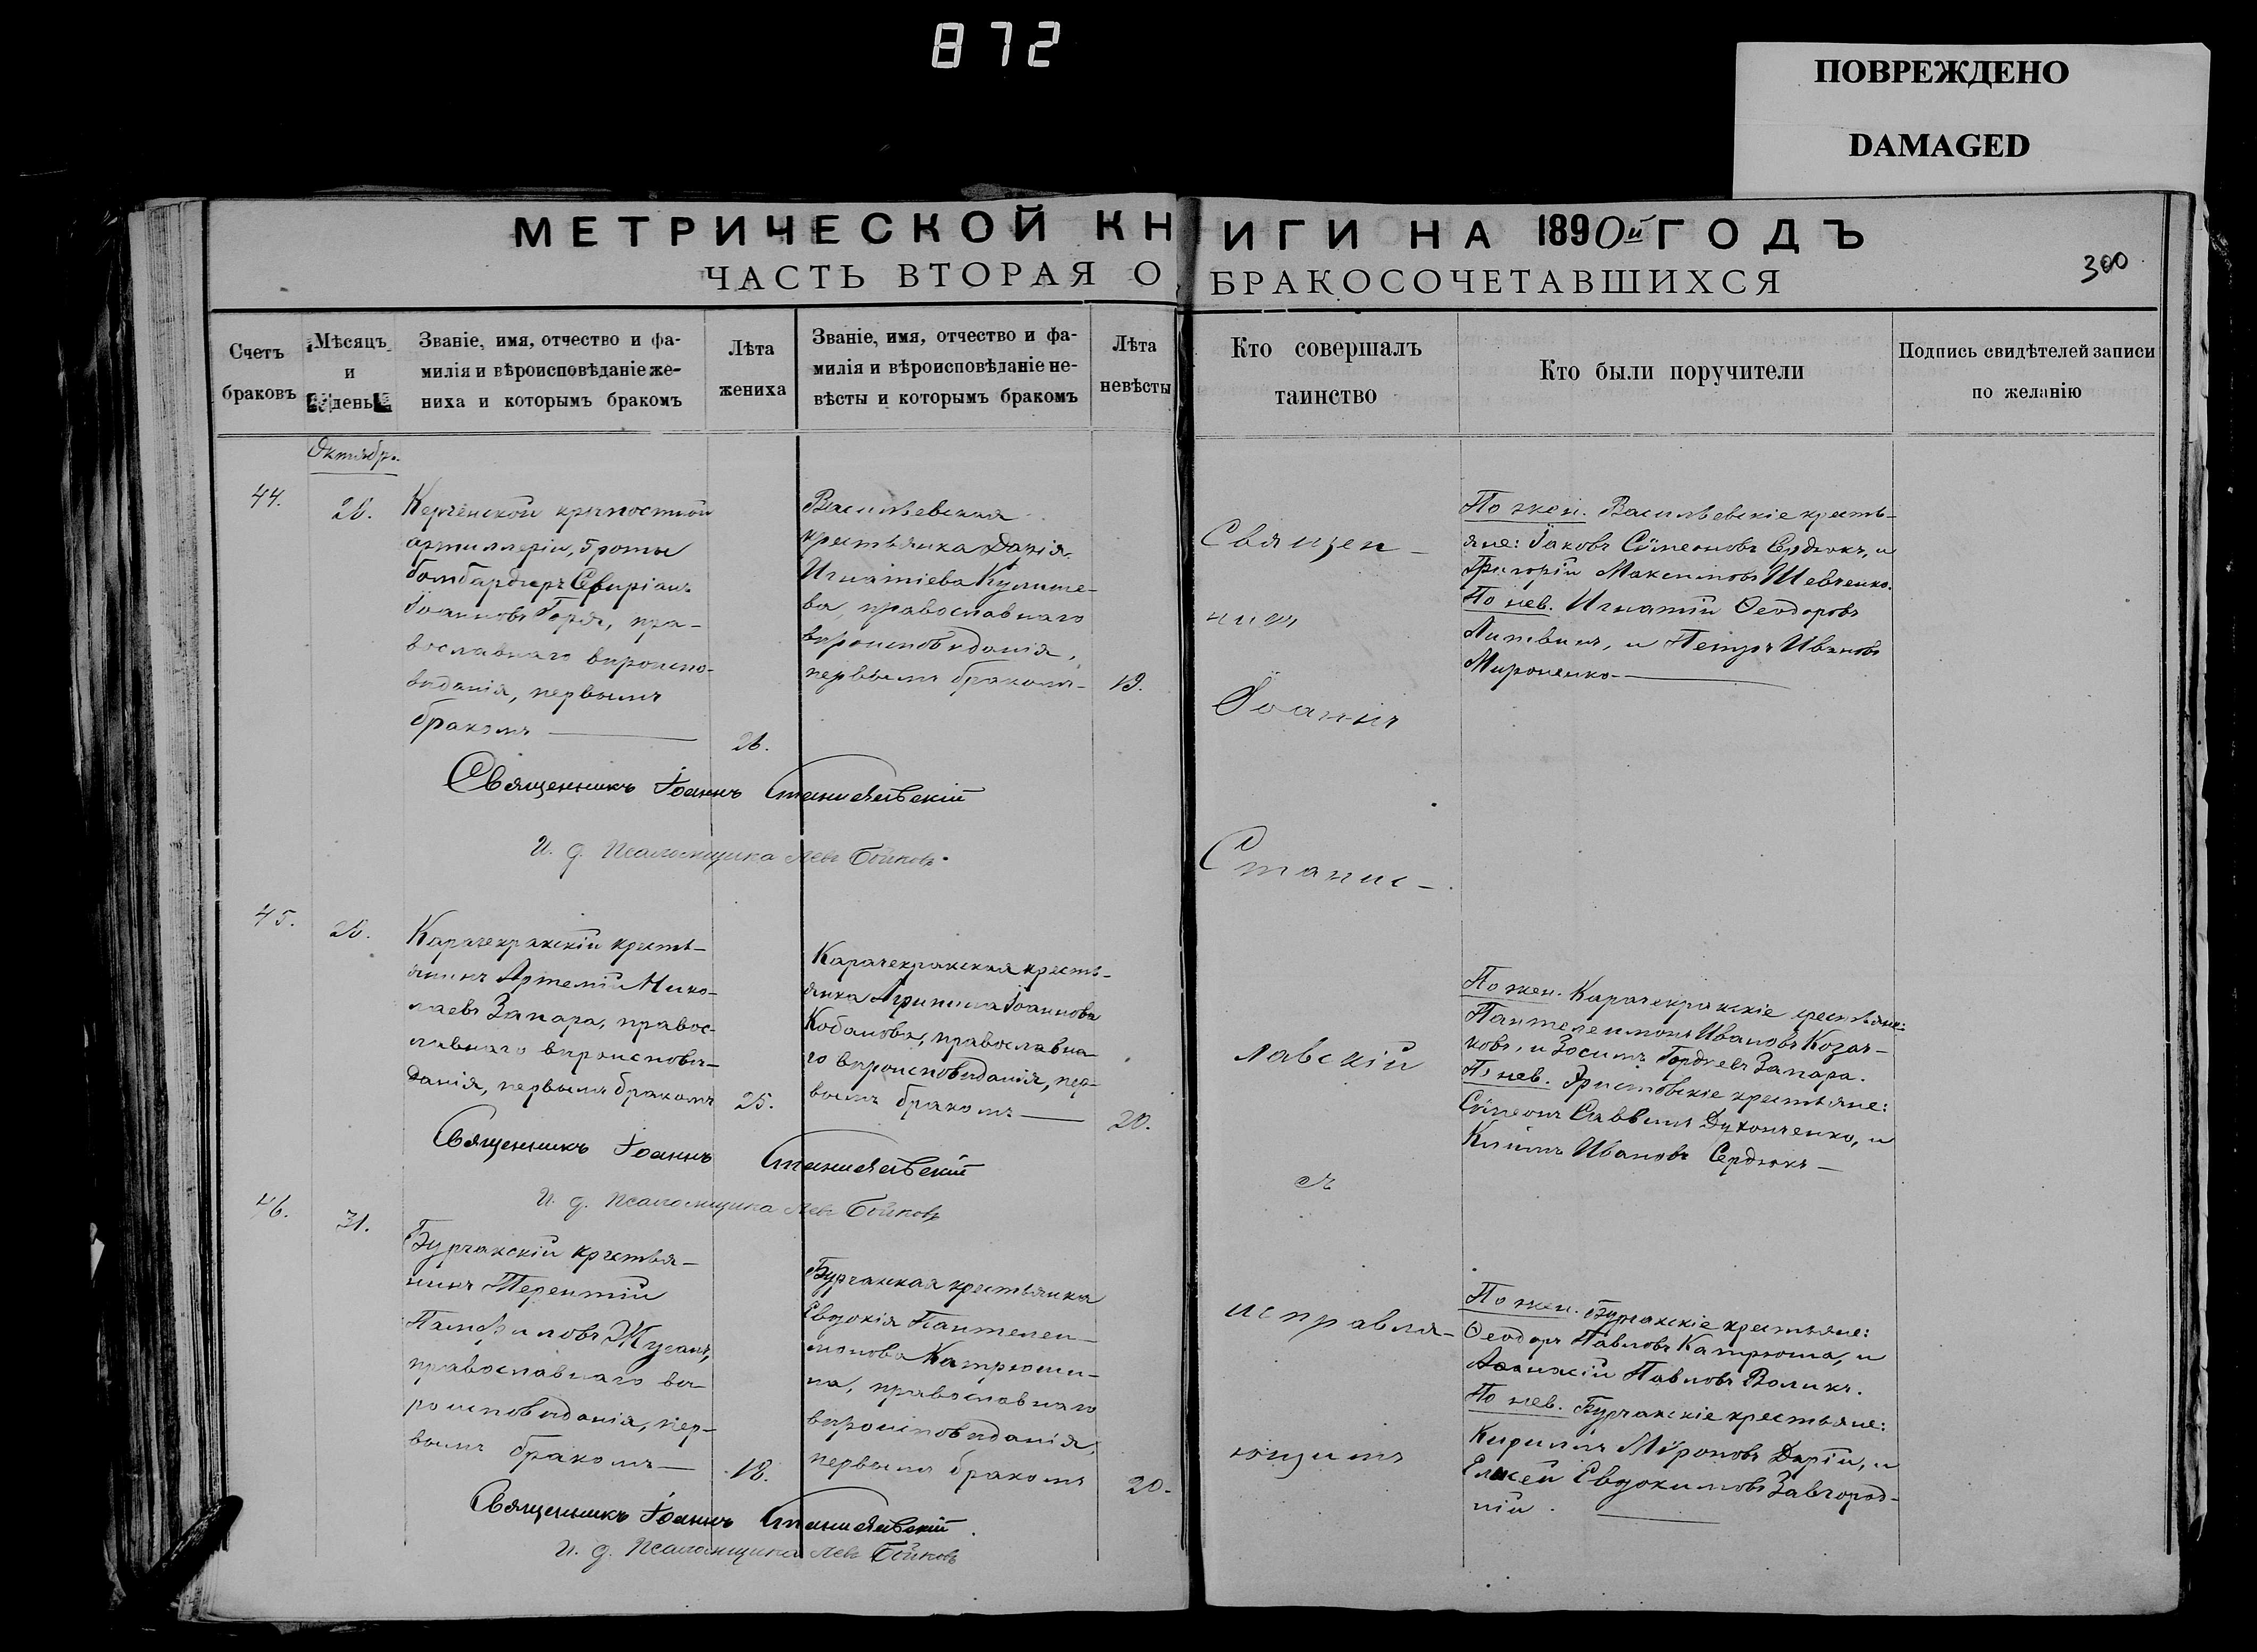 872
ПОВРЕЖДЕНО
DAMAGED
МЕТРИЧЕСКОЙ КНИГИ НА 1890й ГОДЪ
ЧАСТЬ ВТОРАЯ О БРАКОСОЧЕТАВШИХСЯ
300
Счетъ
браковъ
Мѣсяцъ
и
день
Званіе, имя, отчество и фа-
милія и вѣроисповѣданіе же-
ниха и которымъ бракомъ
Лѣта
жениха
Званіе, имя, отчество и фа-
милія и вѣроисповѣданіе не-
вѣсты и которымъ бракомъ
Лѣта
невѣсты
Кто совершалъ
таинство
Кто были поручители
Подпись свидѣтелей записи
по желанію
Октябр.
44.
26.
Керченской крѣпостной
артиллеріи, 5 роты
бомбардиръ Свиріанъ
Іоанновъ Горя, пра-
вославнаго вѣроиспо-
вѣданія, первымъ
бракомъ
26.
Васильевская
крестьянка Дарія
Игнатіева Кулише-
ва, православнаго
вѣроисповѣданія,
первымъ бракомъ
19.
Священ-
никъ
Іоаннъ
Станис-
лавскій
съ
исправля-
ющимъ
По жен. Васильевскіе кресть-
яне: Іаковъ Сѵмеоновъ Сердюкъ, и
Григорій Максимовъ Шевченко.
По нев. Игнатій Ѳеодоровъ
Литвинъ, и Петръ Ивановъ
Мироненко
Священникъ Іоаннъ Станиславскій
И. д. Псаломщика Левъ Бойковъ.
45.
26.
Карачекракскій кресть-
янинъ Артемій Нико-
лаевъ Запара, правос-
лавнаго вѣроисповѣ-
данія, первымъ бракомъ
25.
Карачекракская кресть-
янка Агрипина Іоаннова
Кобанова, православна-
го вѣроисповѣданія, пер-
вымъ бракомъ
20.
По жен. Карачекракскіе крестьяне:
Пантелеимонъ Ивановъ Козач-
ковъ, и Зосимъ Гордѣевъ Запара.
По нев. Эристовскіе крестьяне:
Сѵмеонъ Саввинъ Духонченко, и
Климъ Ивановъ Сердюкъ
Священникъ Іоаннъ Станиславскій
И. д. Псаломщика Левъ Бойковъ
46.
31.
Бурчакскій крестья-
нинъ Терентій
Памфиловъ Жуганъ,
православнаго вѣ-
роисповѣданія, пер-
вымъ бракомъ
18.
Бурчакская крестьянка
Евдокія Пантелеи-
монова Катрюши-
на, православнаго
вѣроисповѣданія,
первымъ бракомъ
20.
По жен. Бурчакскіе крестьяне:
Ѳеодоръ Павловъ Катрюша, и
Павловъ Воликъ.
По нев. Бурчакскіе крестьяне:
Кирилъ Мѵроновъ Дарій, и
Елисей Евдокимовъ Завгород-
ній.
Священникъ Іоаннъ Станиславскій
И. д. Псаломщика Левъ Бойковъ